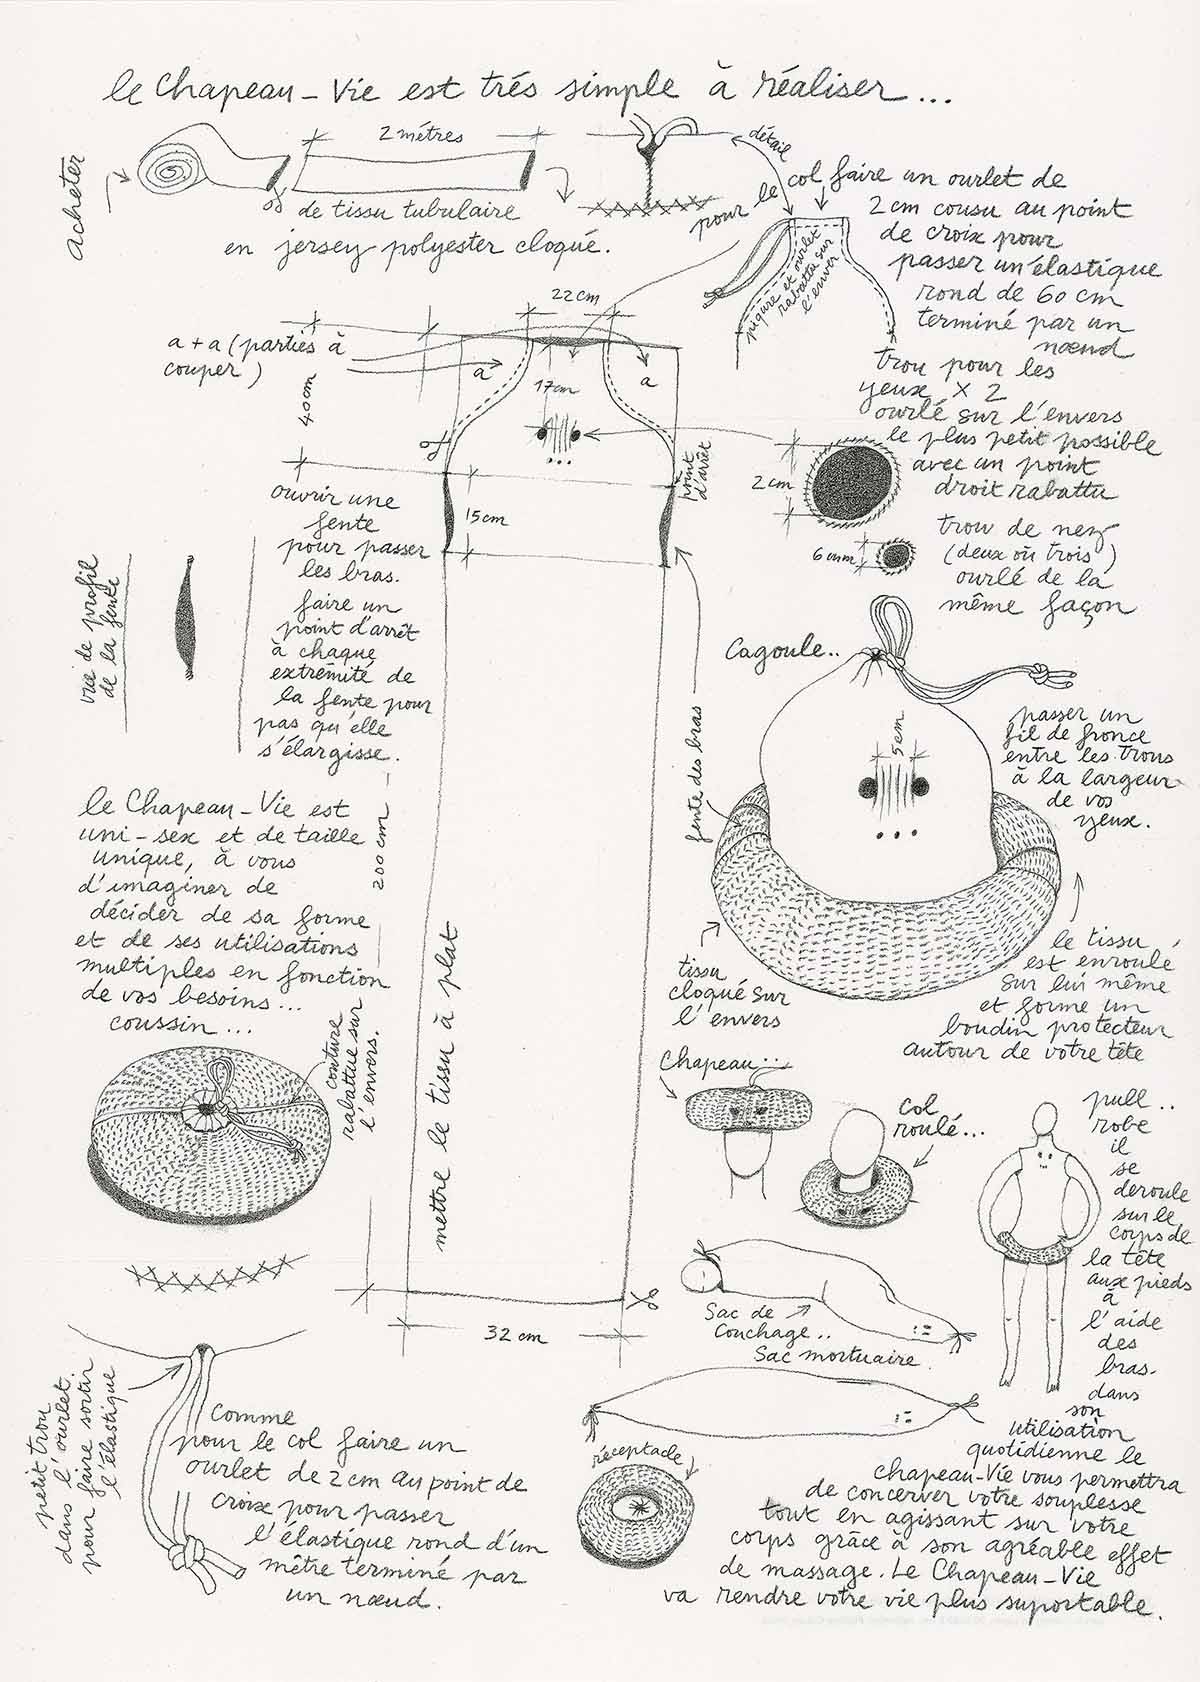 le Chapeau-Vie est trés simple à réaliser...
Acheter
2 métres
de tissu tubulaire
en jersey polyester cloqué.
détail
pour le col faire un ourlet de
2 cm cousu au point
de croix pour
passer un élastique
rond de 60 cm
terminé par un
nœud
piqure et ourlet
rabattu sur
l'enver
22 cm
a + a (parties à
couper)
a
a
40 cm
17 cm
point
d'arrêt
15 cm
trou pour les
yeux x 2
ourlé sur l'envers
le plus petit possible
avec un point
droit rabattu
2 cm
trou de nez
(deux où trois)
ourlé de la
même façon
6 mm
ouvrir une
fente
pour passer
les bras.
faire un
point d'arrêt
à chaque
extrêmité de
la fente pour
pas qu'elle
s'élargisse.
vue de profil
de la fente
200 cm
fente des bras
Cagoule..
5 cm
passer un
fil de fronce
entre les trous
à la largeur
de vos
yeux.
tissu
cloqué sur
l'envers
le tissu
est enroulé
sur lui même
et forme un
boudin protecteur
autour de votre tête
le Chapeau-Vie est
uni-sex et de taille
unique, à vous
d'imaginer de
décider de sa forme
et de ses utilisations
multiples en fonction
de vos besoins...
coussin...
couture
rabattue sur
l'envers.
mettre le tissu à plat
32 cm
Chapeau...
col
roulé...
pull..
robe
il
se
deroule
sur le
corps de
la tête
aux pieds
à
l'aide
des
bras.
dans
son
utilisation
quotidienne le
chapeau-Vie vous permettra
de concerver votre souplesse
tout en agissant sur votre
corps grâce à son agréable effet
de massage. Le Chapeau-Vie
va rendre votre vie plus suportable.
Sac de
Couchage..
Sac mortuaire.
réceptacle
petit trou
dans l'ourlet
pour faire sortir
l'élastique
comme
pour le col faire un
ourlet de 2 cm au point de
croix pour passer
l'élastique rond d'un
mêtre terminé par
un nœud.